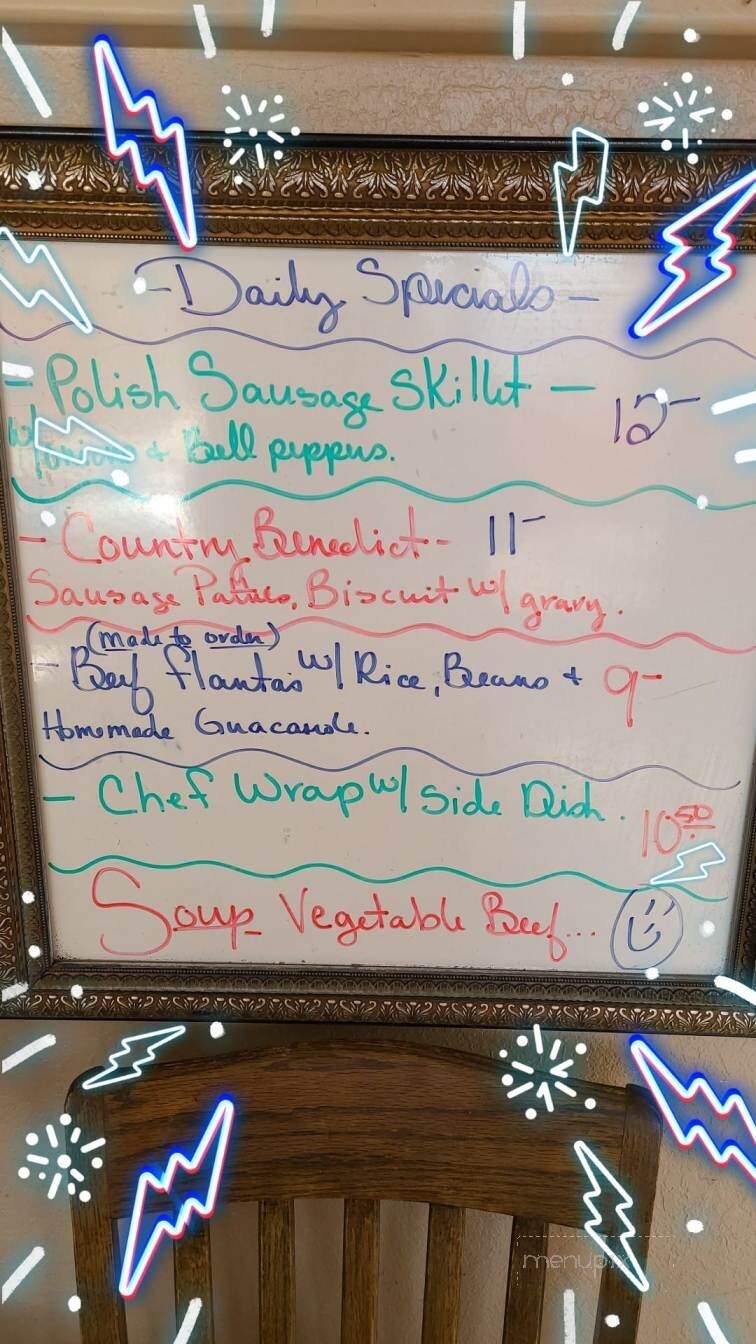 -Daily Specials-
- Polish Sausage Skillet - 12-
w/onions & Bell peppers.
- Country Benedict - 11-
Sausage Patties, Biscuit w/ gravy.
(made to order)
- Beef flantas w/ Rice, Beans + 9-
Homemade Guacamole.
- Chef Wrap w/ Side Dish. 10.50
Soup Vegetable Beef...
menupix